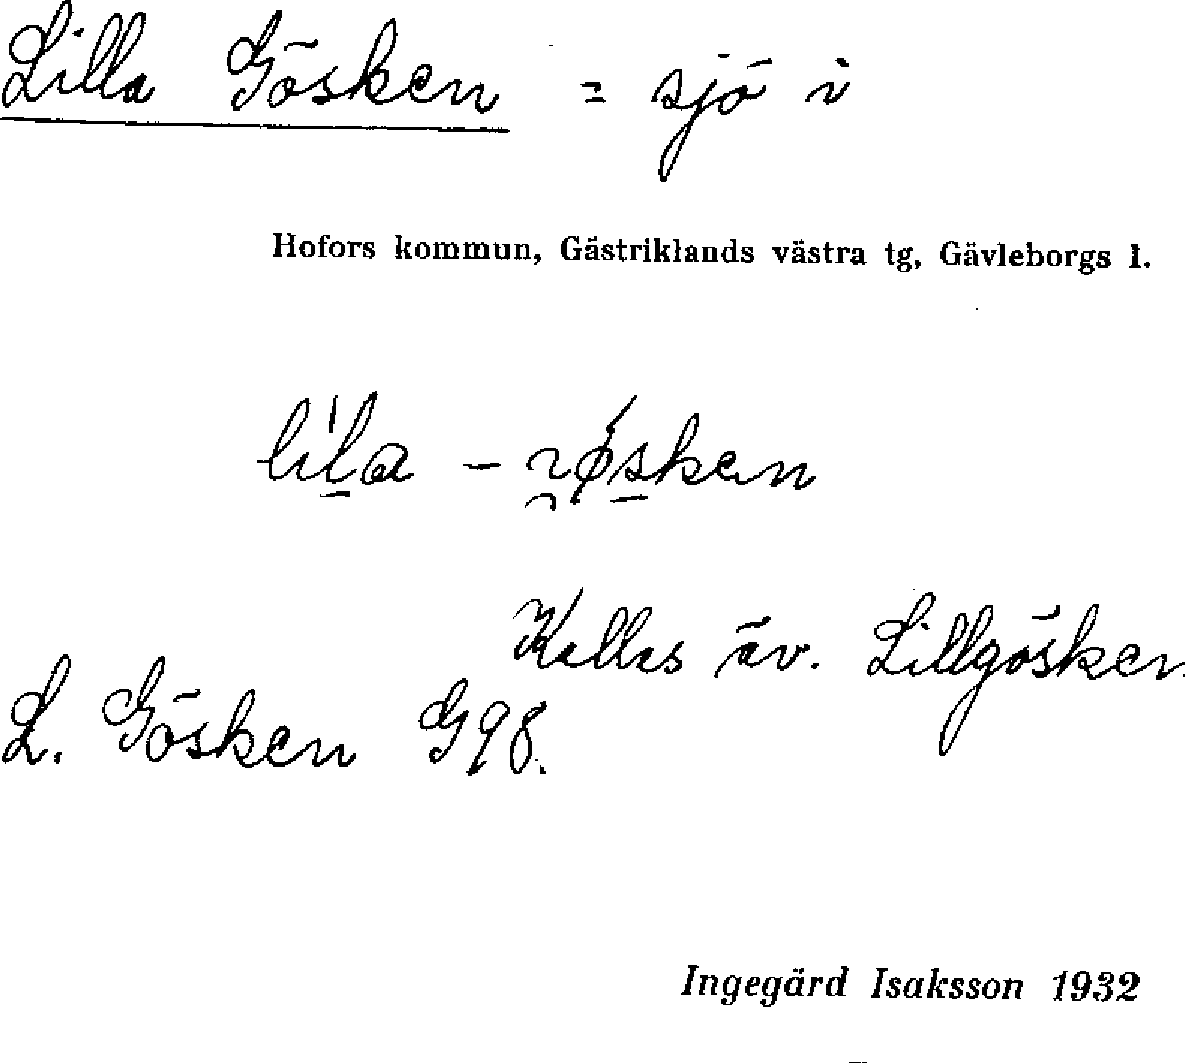 Lilla Gösken = sjö i
Hofors kommun, Gästriklands västra tg, Gävleborgs l.
Kallas äv. Lillgösken
L. Gösken G98.
Ingegärd Isaksson 1932